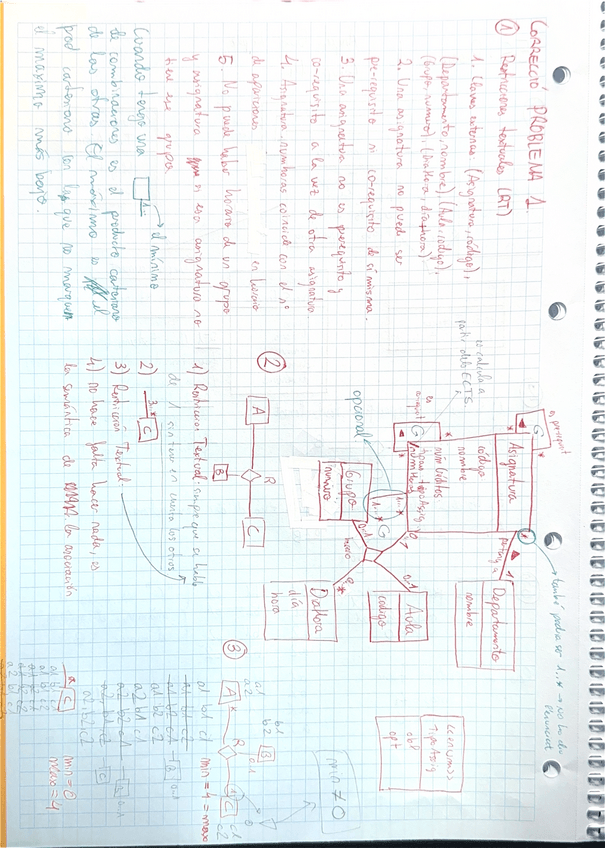 CORRECCIÓ PROBLEMA 1
① Restricciones textuales (RT)
1. Claves externas (Asignatura, código),
(Departamento, nombre), (Aula, código),
(Grupo, número), (DiaHora, dia+hora)
2. Una asignatura no puede ser
pre-requisito ni co-requisito de sí misma.
3. Una asignatura no es prerequisito y
co-requisito a la vez de otra asignatura
4. Asignatura.numHoras coincide con el nº
de apariciones en horario
5. No puede haber horario de un grupo
y asignatura si esa asignatura no
tiene ese grupo.
Cuando tengo una
1..
el mínimo
de combinaciones es el producto cartesiano
de las otras. El máximo es el
prod cartesiano con los que no marquen
el máximo más bajo.
es prerequisit
G
Asignatura
código
nombre
numCréditos
tipo: tipoAssig
numHoras
es calcula a
partir dels ECTS.
opcional
G
1..*
0..1
Grupo
número
horario
Aula
código
0..1
DiaHora
día
hora
Departamento
nombre
1
també podria ser 1..*
<<enum>>
TipoAssig
obl
opt
②
A
R
B
C
1) Restriccion Textual: siempre que se hable
de 1 sin tener en cuenta los otros
2)
3..*
C
3) Restriccion Textual
4) No hace falta hacer nada, es
la semántica de la asociación
③
A
R
B
C
a1
a2
b1
b2
c1
c2
min ≠ 0
a1 b1 c1
min = 4 = max
a1 b1 c2
a1 b2 c1
a1 b2 c2
a2 b1 c1
a2 b1 c2
a2 b2 c1
a2 b2 c2
C
min = 0
max = 4